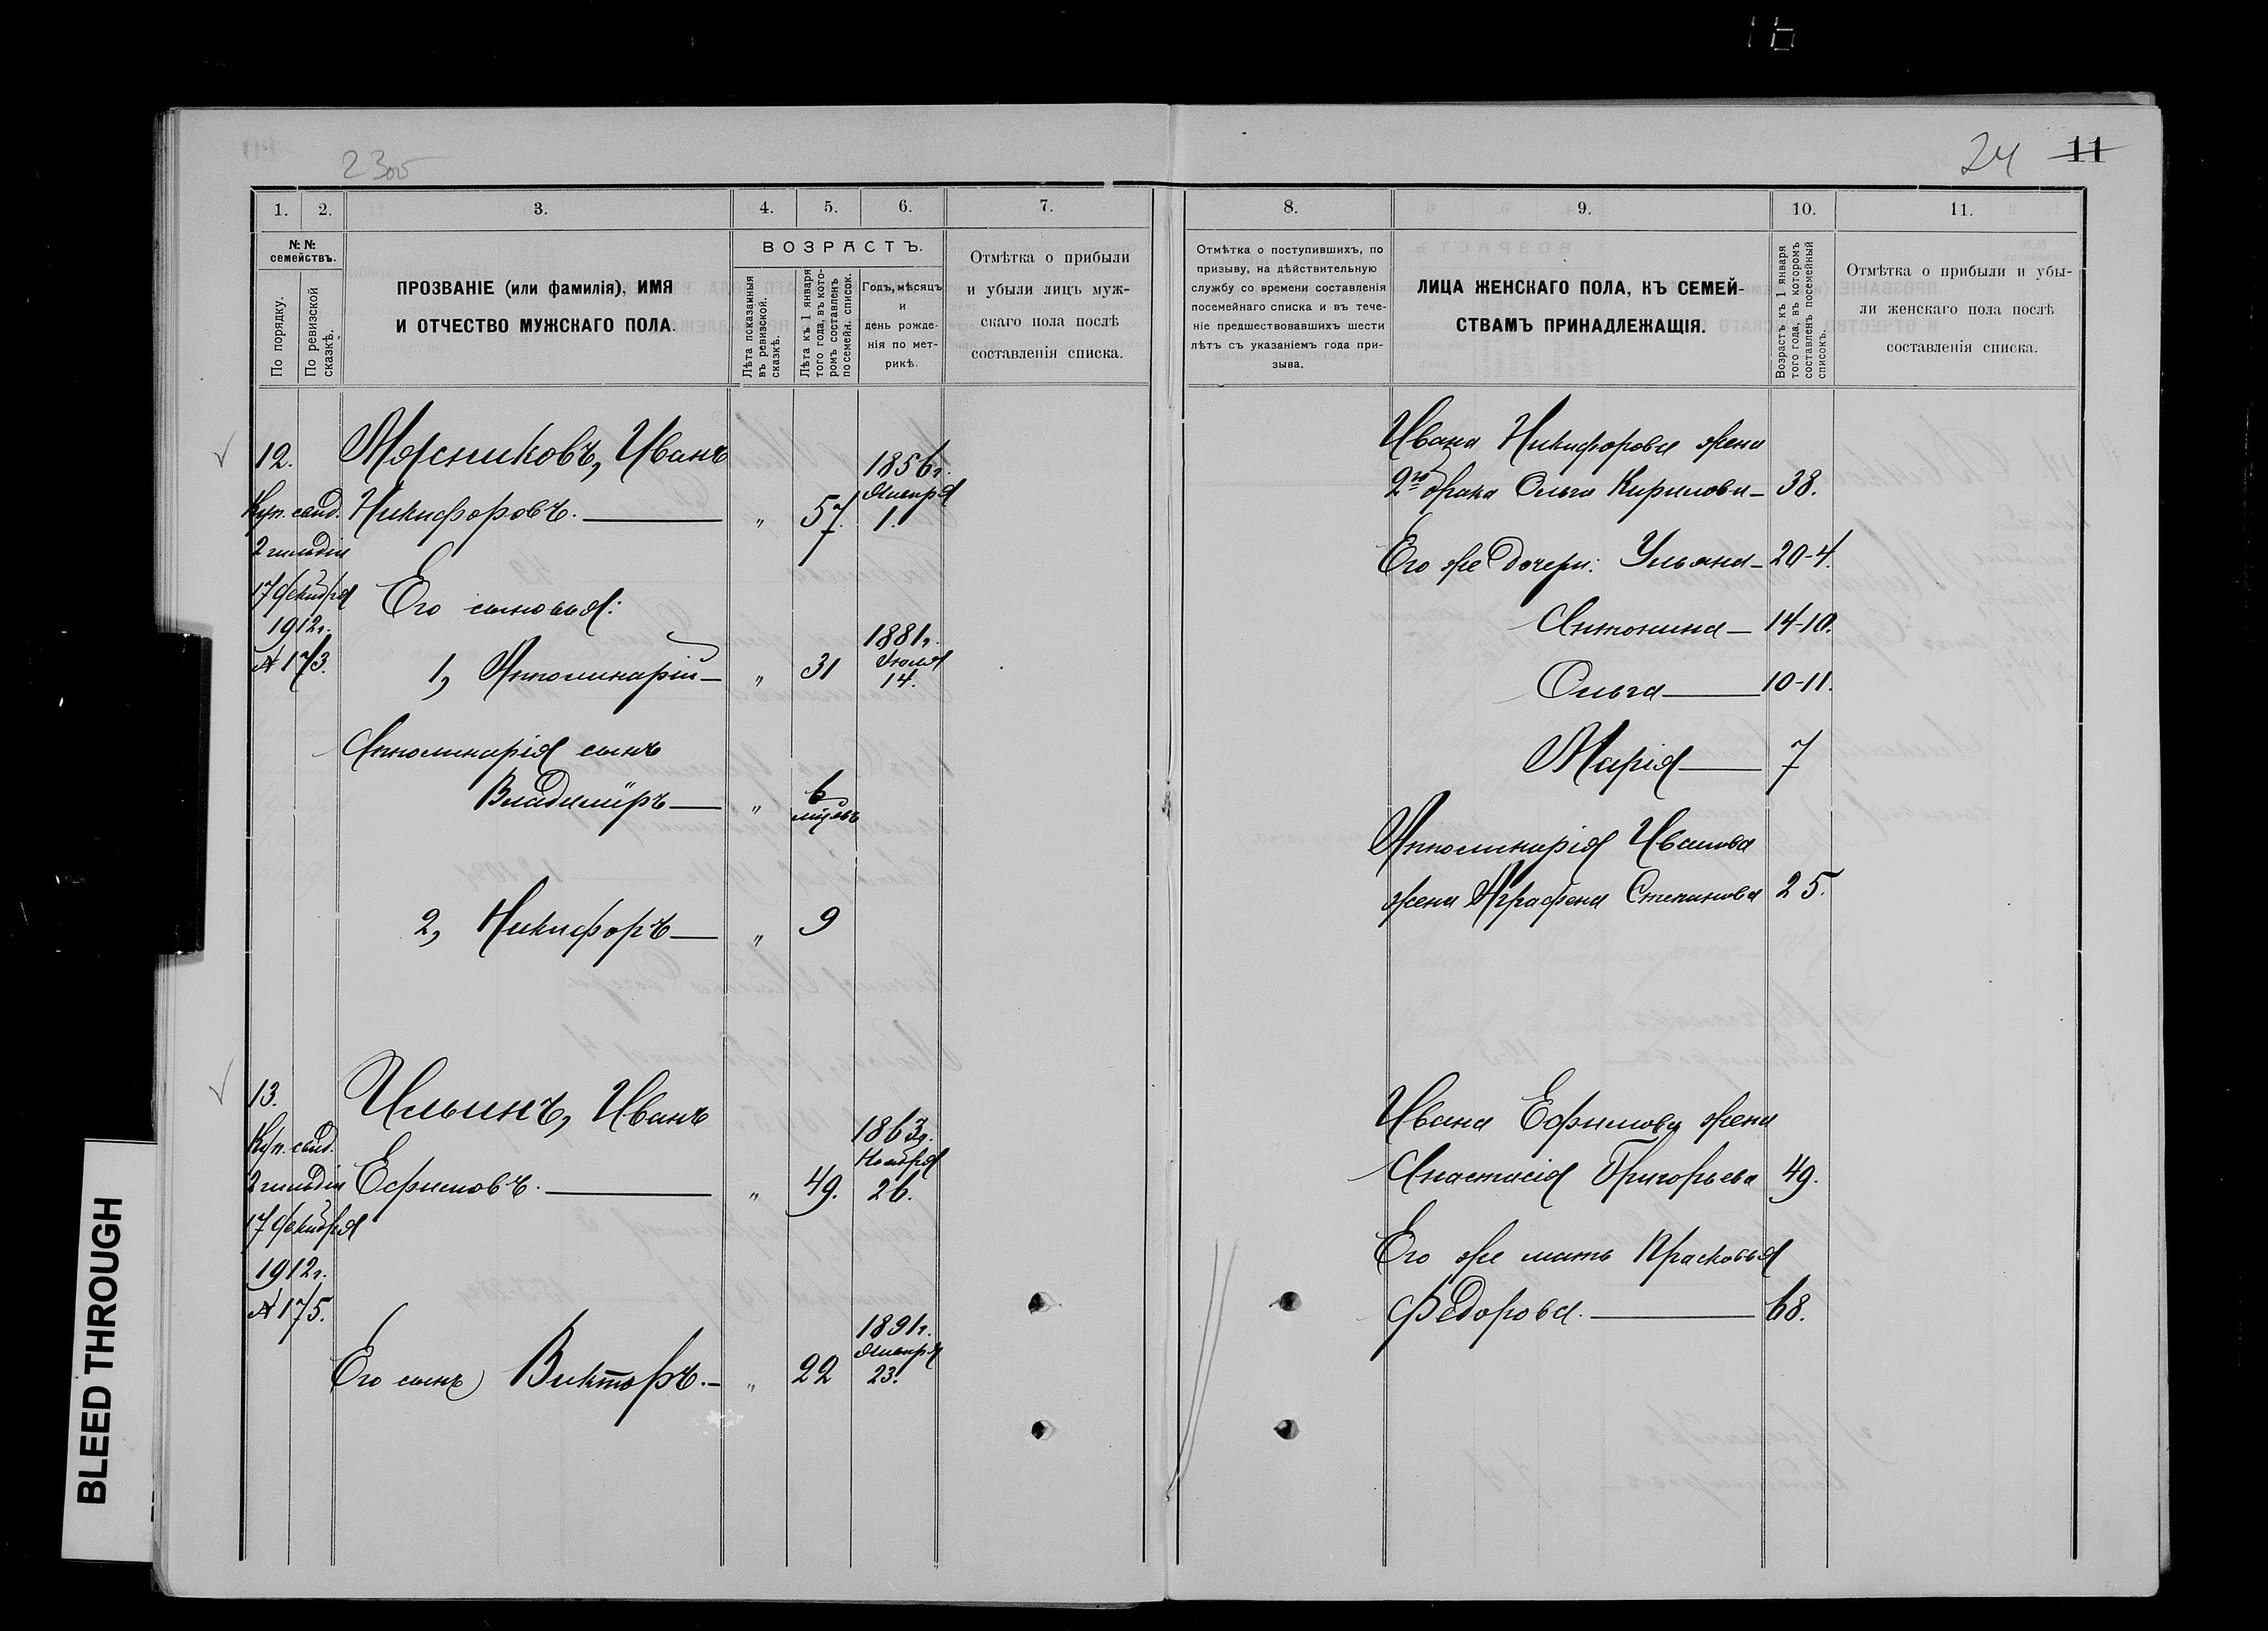 16
23об
24 11
1. 2. 3. 4. 5. 6. 7.
№ №
семействъ.
По порядку.
По ревизской
сказкѣ.
ПРОЗВАНІЕ (или фамилія), ИМЯ
И ОТЧЕСТВО МУЖСКАГО ПОЛА.
ВОЗРАСТЪ.
Лѣта показанныя
въ ревизской.
сказкѣ.
Лѣта къ 1 января
того года, въ кото-
ромъ составленъ
посемейн. списокъ.
Годъ, мѣсяцъ
и
день рожде-
нія по мет-
рикѣ.
Отмѣтка о прибыли
и убыли лицъ муж-
скаго пола послѣ
составленія списка.
12.
Куп. свид.
2 гильдіи
17 декабря
1912 г.
№ 173.
Мясниковъ, Иванъ
Никифоровъ. — " 57. 1856 г. Января 1.
Его сыновья:
1, Апполинарій — " 31 1881 г. Іюля 14.
Апполинарія сынъ
Владиміръ — " 6 мѣсяцъ
2, Никифоръ — " 9
13.
Куп. свид.
2 гильдіи
17 декабря
1912 г.
№ 175.
Ильинъ, Иванъ
Ефимовъ. — " 49. 1863 г. Ноября 26.
Его сынъ Викторъ. — " 22 1891 г. Января 23.
8. 9. 10. 11.
Отмѣтка о поступившихъ, по
призыву, на дѣйствительную
службу со времени составленія
посемейнаго списка и въ тече-
ніе предшествовавшихъ шести
лѣтъ съ указаніемъ года при-
зыва.
ЛИЦА ЖЕНСКАГО ПОЛА, КЪ СЕМЕЙ-
СТВАМЪ ПРИНАДЛЕЖАЩІЯ.
Возрастъ къ 1 января
того года, въ которомъ
составленъ посемейный
списокъ.
Отмѣтка о прибыли и убы-
ли женскаго пола послѣ
составленія списка.
Ивана Никифорова жена
2го брака Ольга Кирилова — 38.
Его же дочери: Ульяна — 20-4.
Антонина — 14-10.
Ольга — 10-11.
Марія — 7
Апполинарія Иванова
жена Аграфена Степанова 25.
Ивана Ефимова жена
Анастасія Григорьева 49.
Его же мать Прасковья
Федорова. — 68.
BLEED THROUGH